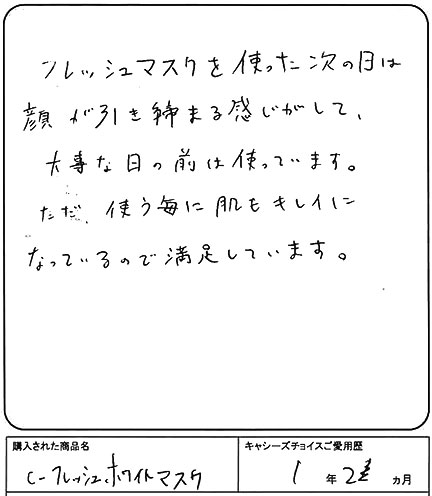 フレッシュマスクを使った次の日は
顔が引き締まる感じがして、
大事な日の前は使っています。
ただ、使う毎に肌もキレイに
なっているので満足しています。
購入された商品名
キャシーズチョイスご愛用歴
C-フレッシュホワイトマスク
1年2ヵ月